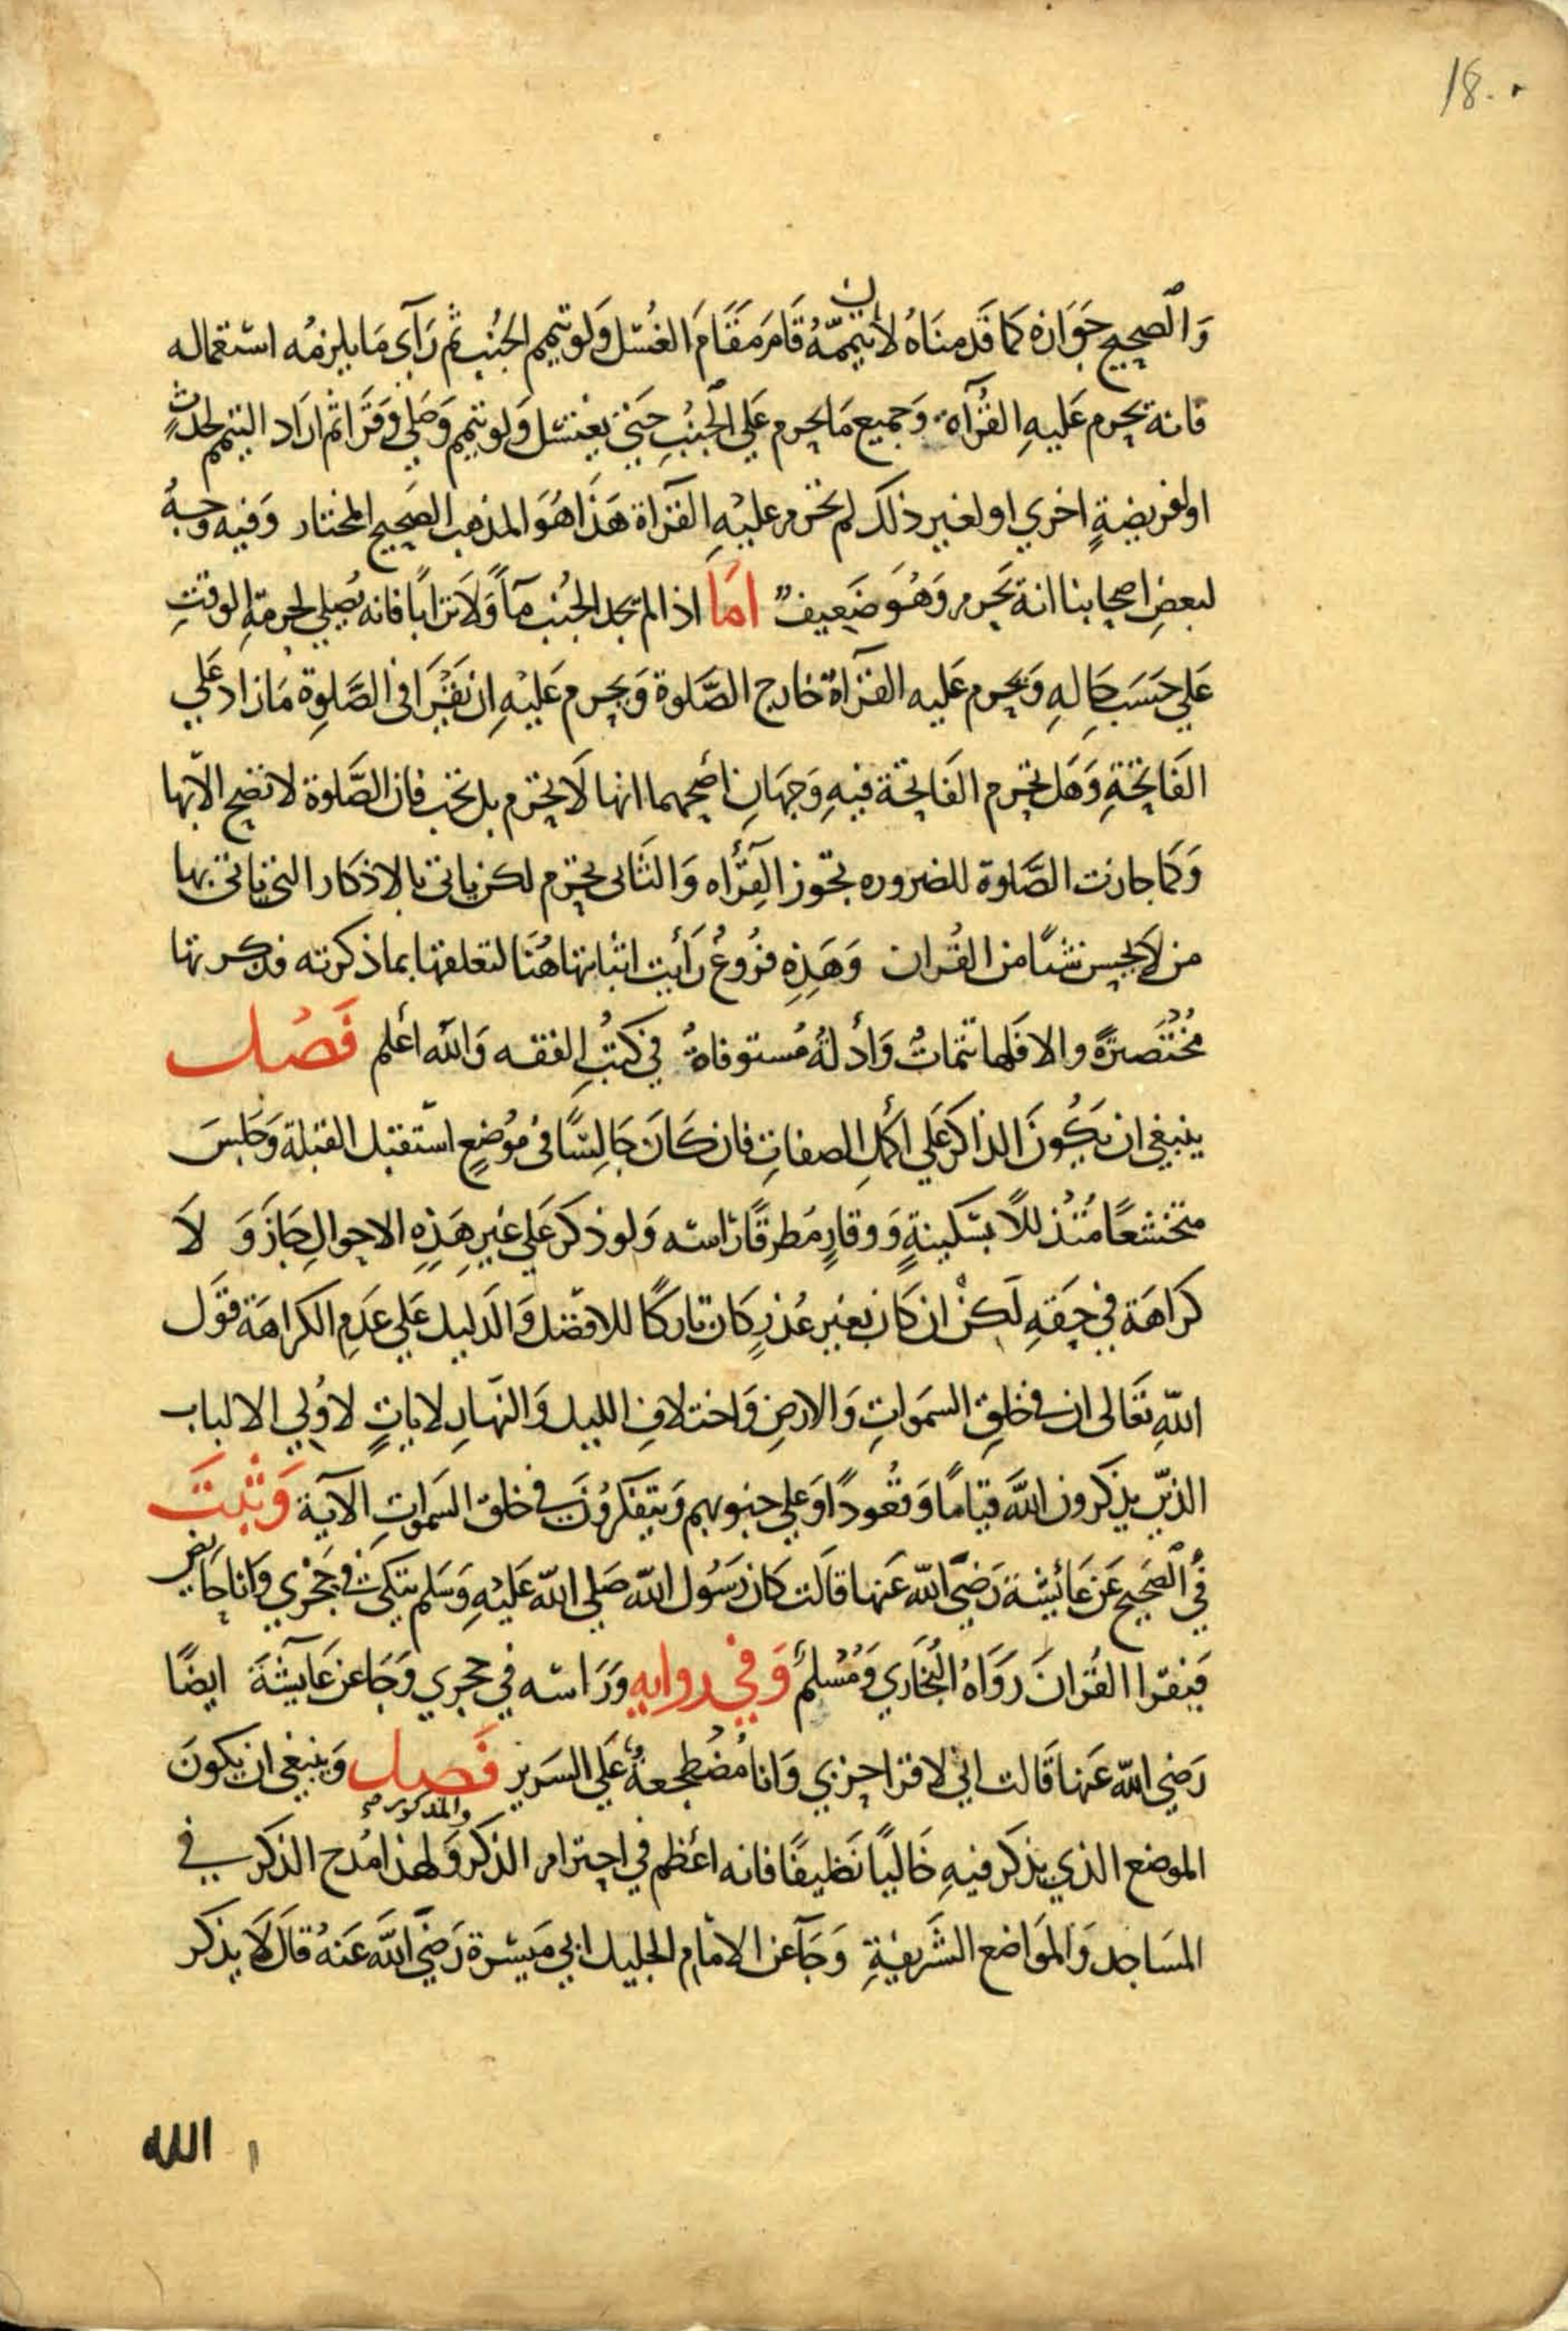 18.
وَالصحيح جَوَازه كما قَدمنَاهُ لأن تيممّهُ قَامَ مَقَامَ الغُسْل وَلو تيمم الجُنب ثم رَآى مَا يلزمُه استعماله
فانه يحرم عَليهِ القُرآة وَجميع مَا يحرم عَلي الجُنبِ حَتي يغتسل وَلو تيمم وَصَلي وَقَرَا ثم ارَاد التيمم لحدثٍ
او لفريضةٍ اخري او لغير ذلكَ لم تحرم عليْهِ القرآة هَذَا هُوَ المذهب الصَحيح المختار وَفيه وَجهٌ
لبعضِ اصحابنا انه يَحرم وَهُوَ ضَعيفٌ امَا اذا لم يجد الجُنب مآً وَلَا ترَابًا فانه يُصلي لحرمةِ الوقتِ
عَلي حَسَب حَالِهِ وَيحرم عَليه القرآة خارج الصَّلوة وَيحرم عَليْهِ ان يَقْرَا في الصَّلوةِ مَا زاد عَلي
الفَاتحَةِ وَهَل تحرم الفَاتحَة فيهِ وَجهَانِ أصحهما انها لَا تحرم بل تجب فان الصَّلوة لا تصح الّا بها
وَكما جازت الصَّلوة للضروره تجوز القِرُآه وَالثَانى تحرم لكن ياتى بالاذكار التي ياتى بها
من لَا يحسِن شَياً من القُران وَهَذِهِ فرُوعٌ رَأيت اثباتها هُنَا لتعلقها بما ذكرته فذكرتها
مُخْتَصَرَةً والا فَلها تتمَاتٌ وَأدلةٌ مُستوفاةٌ في كتُبِ الفقه وَالله أعلم فَصْل
ينبغي ان يَكُونَ الذاكر عَلي أكملِ الصفاتِ فان كَانَ جَالِسًا فى مَوْضعٍ استَقبَل القبلة وَجَلسَ
متخشعًا مُتذللاً بسَكينةٍ وَوقارٍ مُطرقًا رَاسه وَلو ذكر عَلي غيرِ هَذِهِ الاحوالِ جَازَ وَ لَا
كرَاهَة في حَقهِ لَكنْ ان كَان بغير عُذرٍ كَان تاركًا للافضَل وَالدَليل عَلي عَدَمِ الكرَاهَة قوَل
اللهِ تعَالى ان في خلقِ السمَواتِ وَالارضِ وَاختلافِ الليل وَالنهَارِ لاياتٍ لاُولي الالباب
الذيْن يذكرون اللَّهَ قيَامًا وَقعُودًا وَعَلي جنوبهم وَيتفكرُونَ في خلق السَموَاتِ الآيَة وَثبتَ
في الصَحيح عَن عَائِشة رَضيَ الله عَنهَا قالَت كان رَسُول الله صَلي الله عَليْهِ وَسَلم يتكئ في حَجْري وَانا حَايض
فَيَقرا القُرانَ رَوَاهُ البُخَاري وَمُسْلمٌ وَفي روايه وَرَاسه في حجري وَجَا عن عَايشَةَ ايضًا
رَضي الله عَنهَا قَالت اني لاقرا حزبي وَانا مُضطجعةٌ عَلي السَرير فَصل وَينبغي ان يكونَ
الموضع الذي يذكر فيهِ خَالياً نَظيفًا فانه أعظم في احترام الذكر وَالمذكور وَلهذا مُدح الذكر في
المسَاجد وَالموَاضع الشَريفةِ وَجَآ عن الامَام الجليل ابي مَيسَرة رَضيَ اللَّه عَنهُ قالَ لَا يذكر
الله